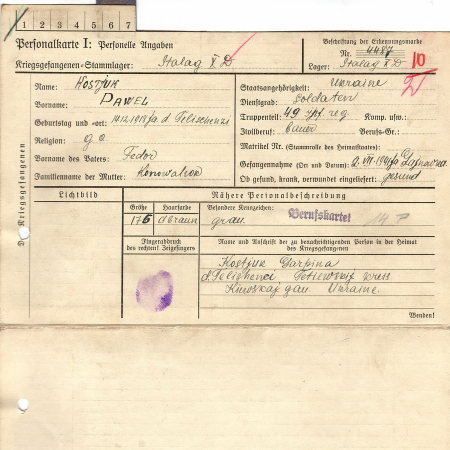 1 2 3 4 5 6 7
Personalkarte I: Personelle Angaben
Kriegsgefangenen-Stammlager: Stalag X D
Beschriftung der Erkennungsmarke
Nr. 4487
Lager: Stalag X D 10
Des Kriegsgefangenen
Name: Kostjuk
Vorname: PAWEL
Geburtstag und -ort:
Religion: g.o.
Vorname des Vaters: Fedor
Familienname der Mutter: Konowaltschuk
Staatsangehörigkeit: Ukraine
Dienstgrad: Soldaten
Truppenteil: 49 reg. Komp. usw.:
Zivilberuf: bauer Berufs-Gr.:
Matrikel Nr. (Stammrolle des Heimatstaates):
Gefangennahme (Ort und Datum):
Ob gesund, krank, verwundet eingeliefert: gesund
Lichtbild
Nähere Personalbeschreibung
Größe Haarfarbe Besondere Kennzeichen:
176 dbraun grau. Berufskartei
Fingerabdruck
des rechten! Zeigefingers
Name und Anschrift der zu benachrichtigenden Person in der Heimat
des Kriegsgefangenen
Kostjuk Garpina
Ukraine
Wenden!